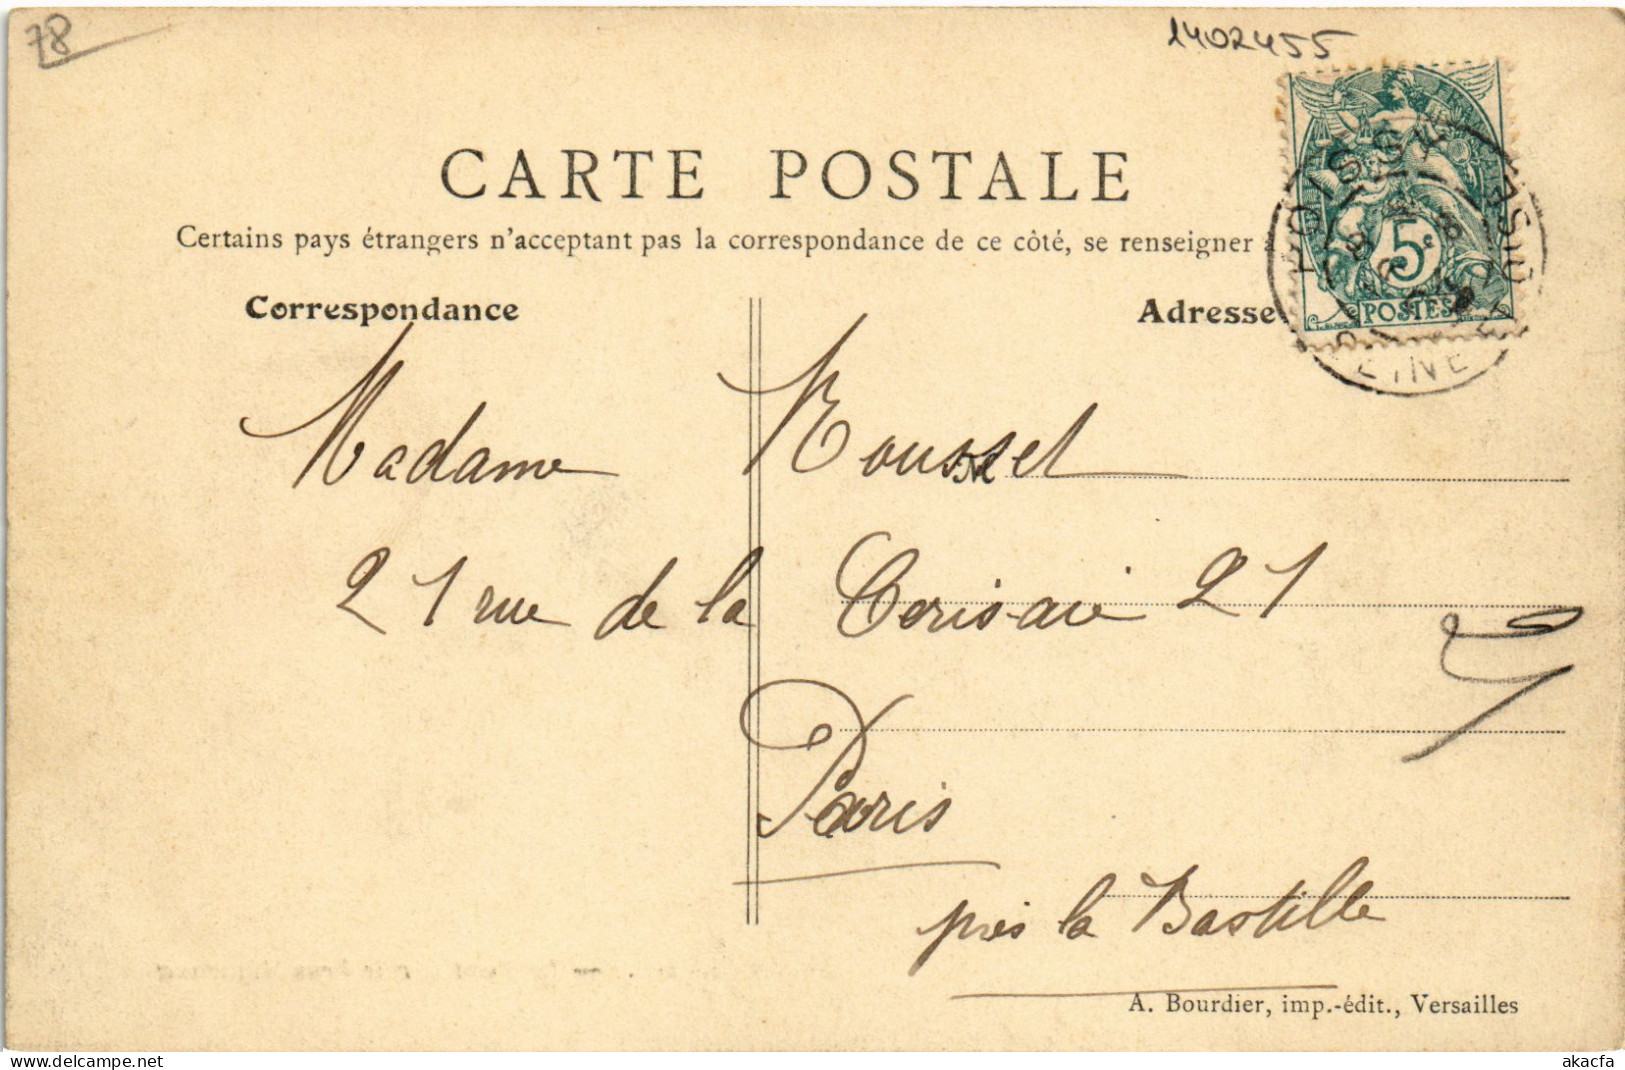 78
1402455
CARTE POSTALE
Certains pays étrangers n'acceptant pas la correspondance de ce côté, se renseigner à
Correspondance
Adresse
5c
POSTES
POISSY
SEINE
OISE
Madame Rousset
21 rue de la Cerisaie 21
Paris
près la Bastille
A. Bourdier, imp.-édit., Versailles
akacfa